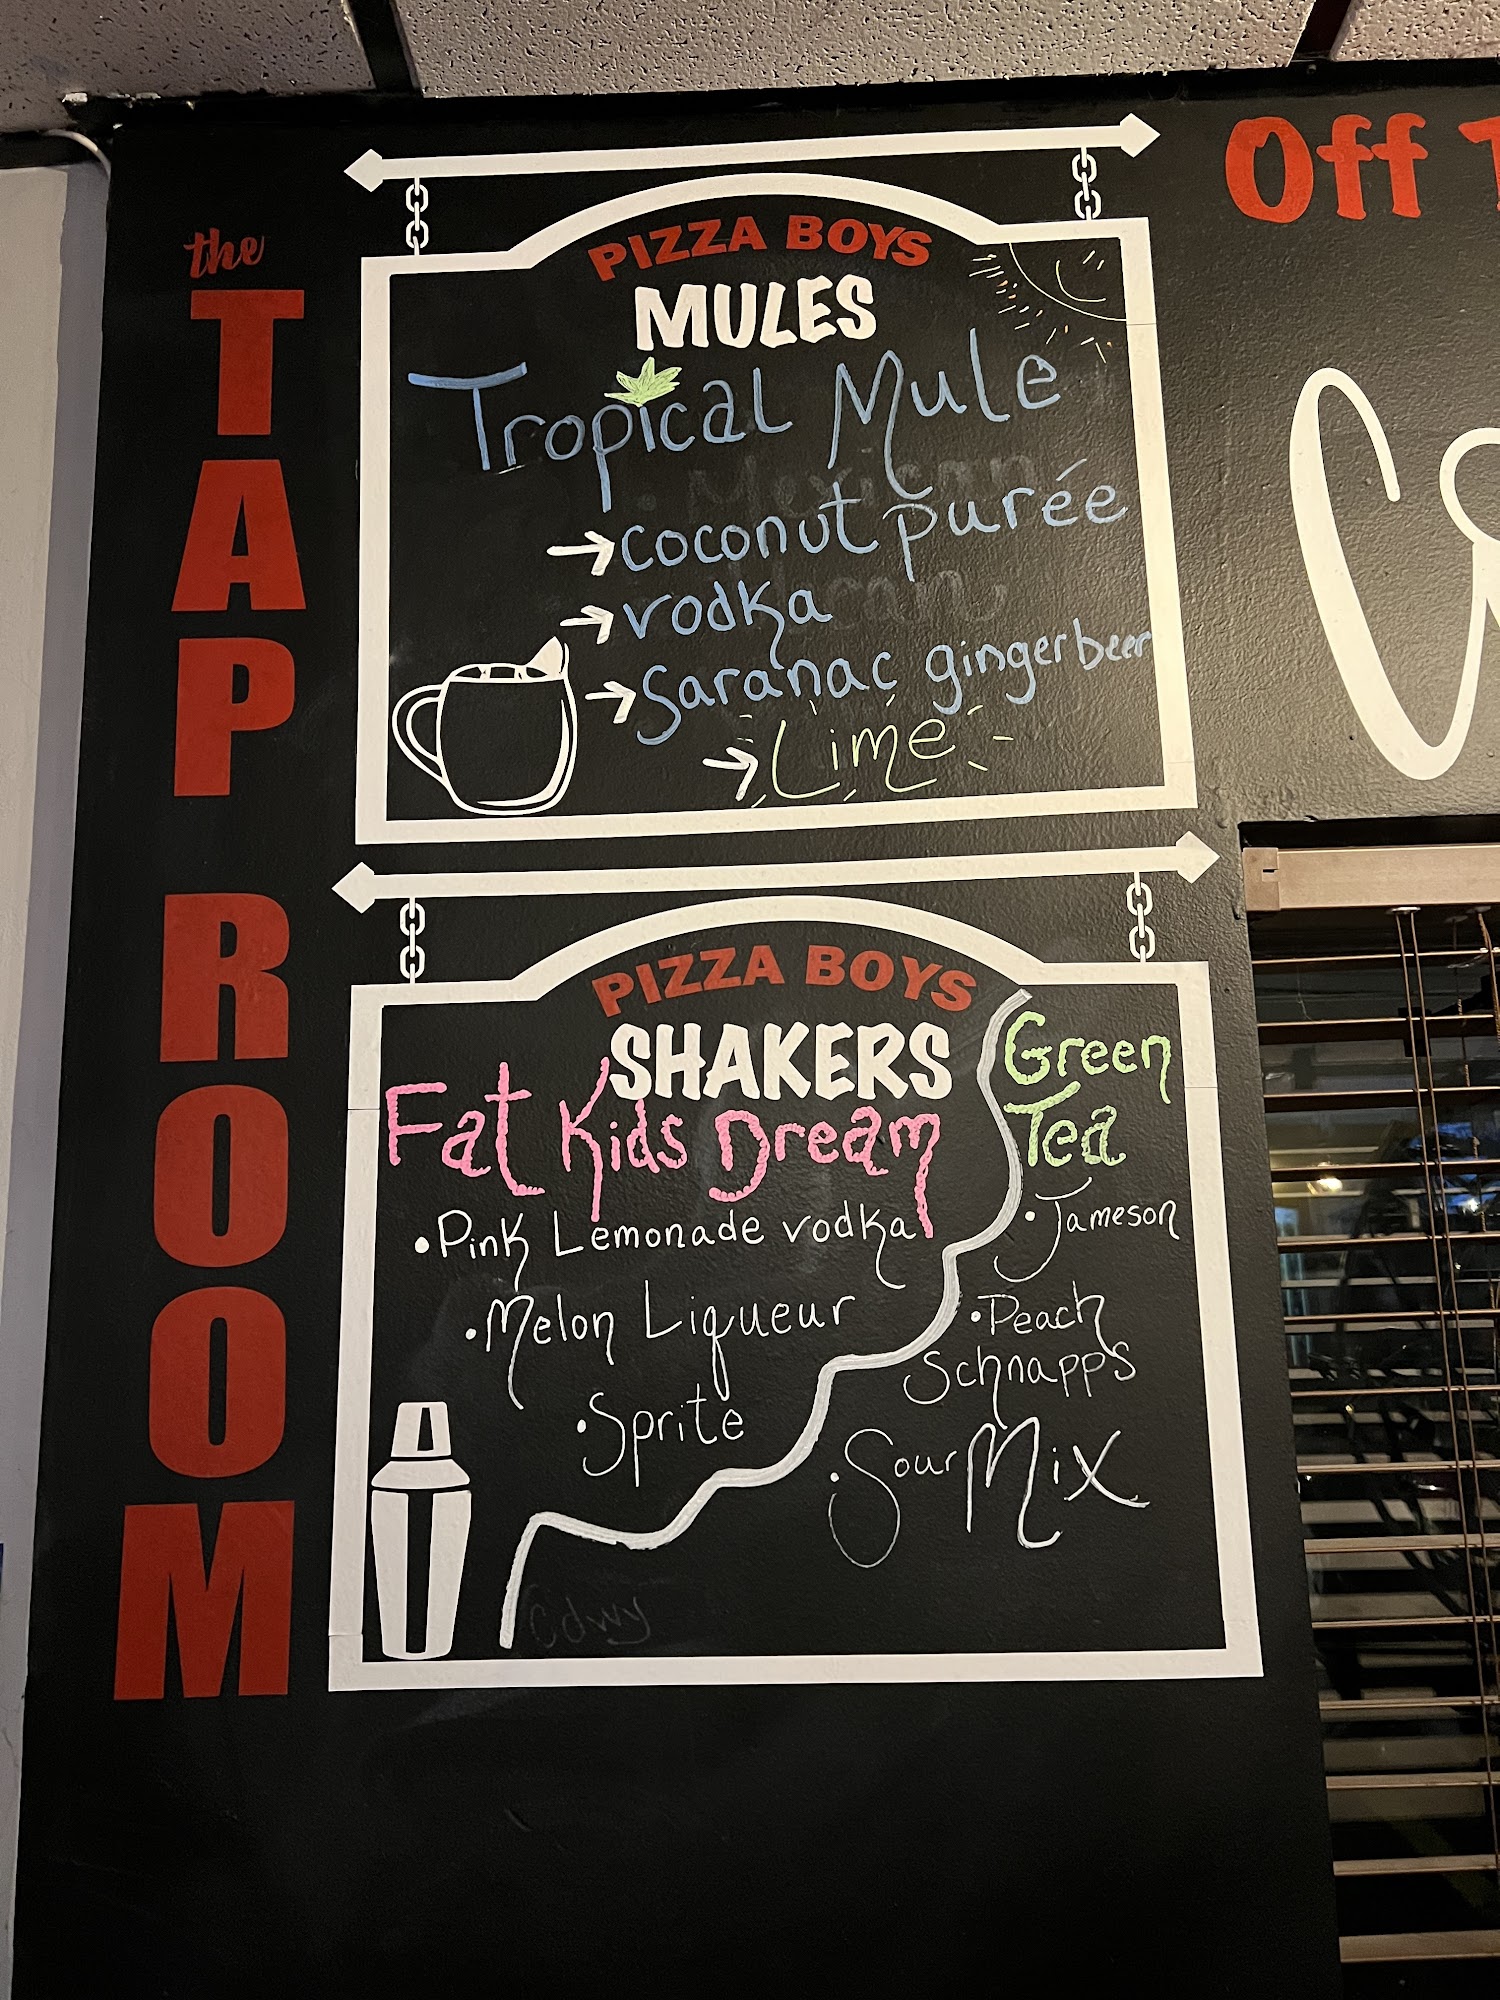 the
TAP ROOM
PIZZA BOYS
MULES
Tropical Mule
→ coconut purée
→ vodka
→ Saranac ginger beer
→ Lime
PIZZA BOYS
SHAKERS
Fat Kids Dream
• Pink Lemonade vodka
• Melon Liqueur
• Sprite
Green
Tea
• Jameson
• Peach
Schnapps
• Sour Mix
Off